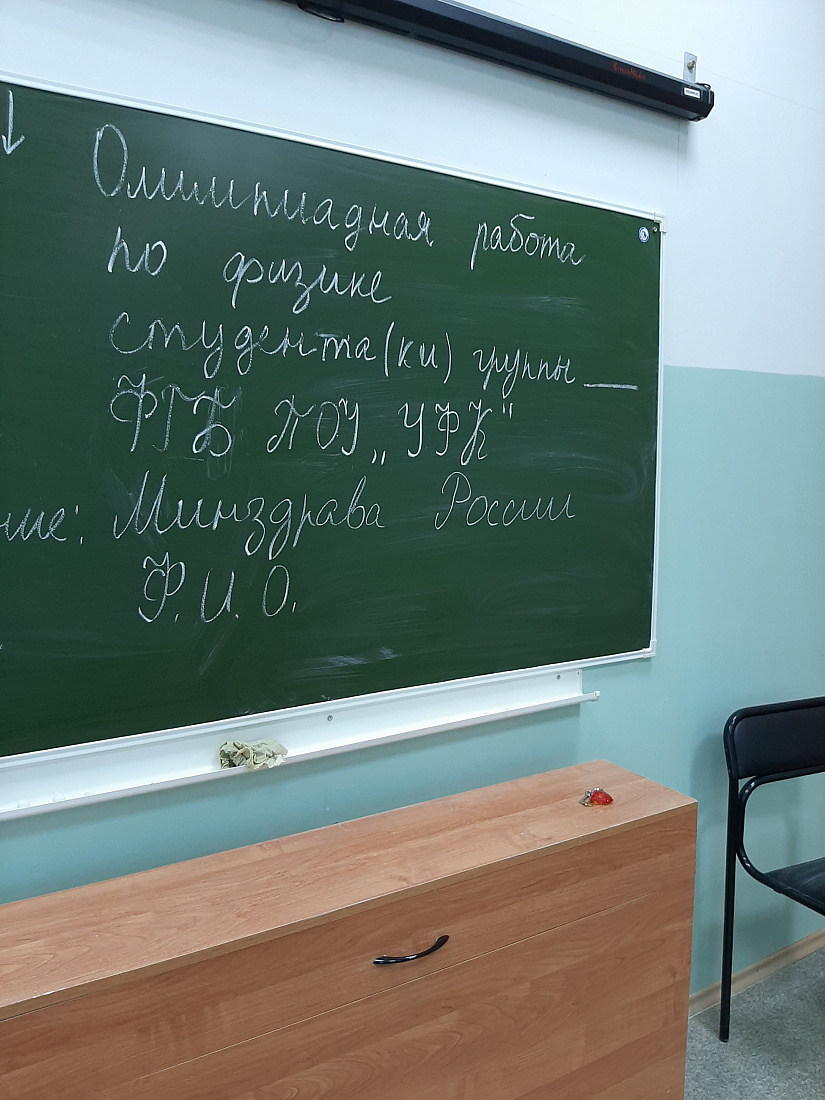 Олимпиадная работа
по физике
студента(ки) группы ___
ФГБ ПОУ „УФК"
Минздрава России
Ф.И.О.